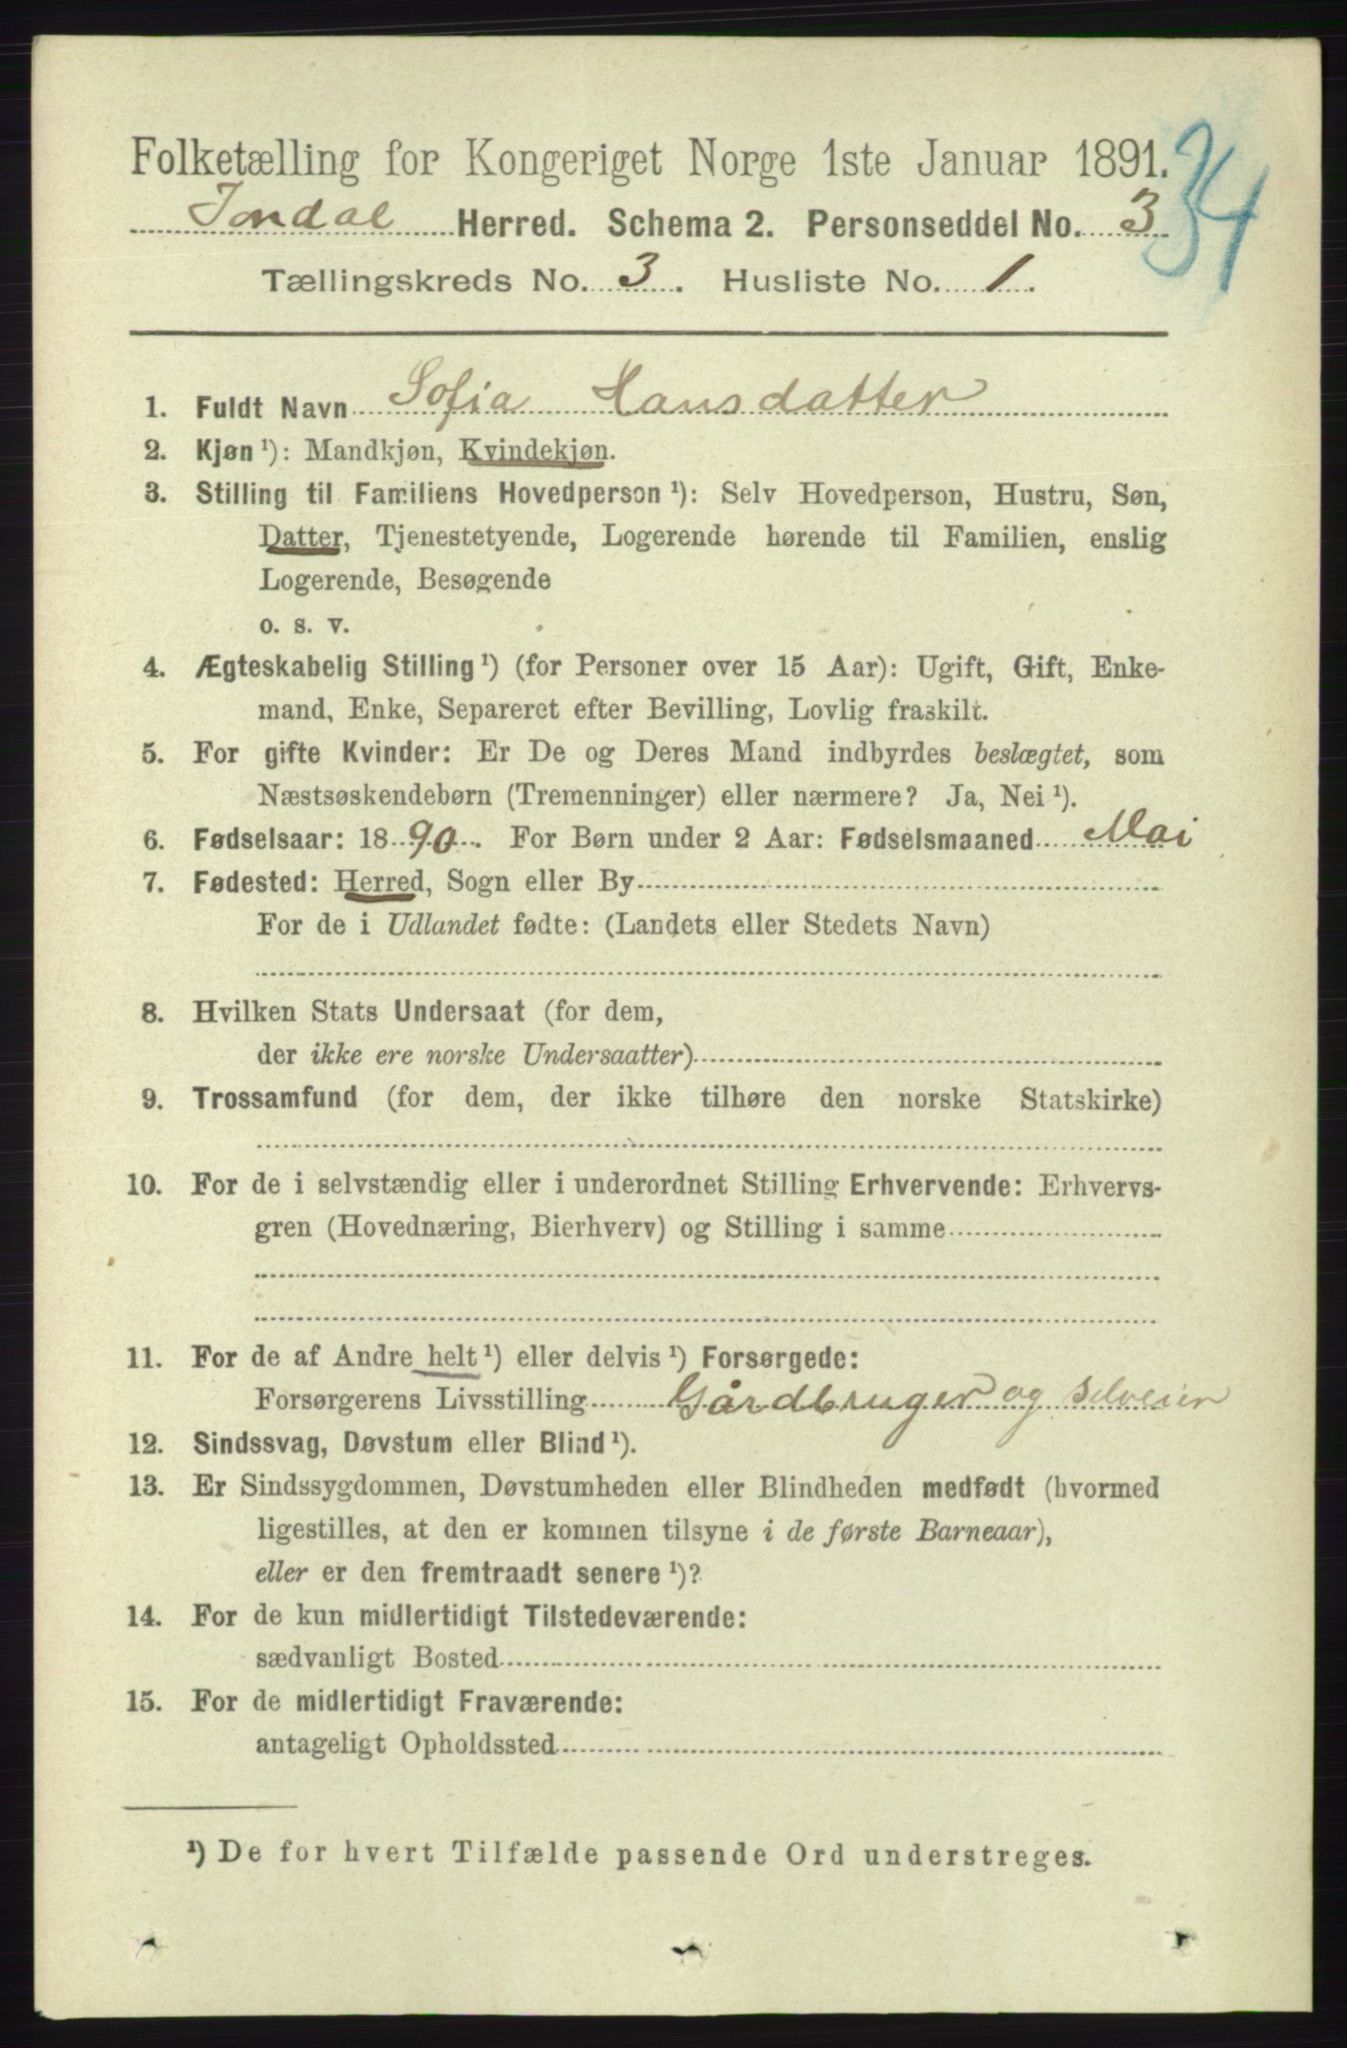 Folketælling for Kongeriget Norge 1ste Januar 1891.
34
Jondal Herred. Schema 2. Personseddel No. 3
Tællingskreds No. 3. Husliste No. 1.
1. Fuldt Navn Sofia Hansdatter
2. Kjøn ¹): Mandkjøn, Kvindekjøn.
3. Stilling til Familiens Hovedperson ¹): Selv Hovedperson, Hustru, Søn,
Datter, Tjenestetyende, Logerende hørende til Familien, enslig
Logerende, Besøgende
o. s. v.
4. Ægteskabelig Stilling ¹) (for Personer over 15 Aar): Ugift, Gift, Enke-
mand, Enke, Separeret efter Bevilling, Lovlig fraskilt.
5. For gifte Kvinder: Er De og Deres Mand indbyrdes beslægtet, som
Næstsøskendebørn (Tremenninger) eller nærmere? Ja, Nei ¹).
6. Fødselsaar: 1890. For Børn under 2 Aar: Fødselsmaaned Mai
7. Fødested: Herred, Sogn eller By
For de i Udlandet fødte: (Landets eller Stedets Navn)
8. Hvilken Stats Undersaat (for dem,
der ikke ere norske Undersaatter)
9. Trossamfund (for dem, der ikke tilhøre den norske Statskirke)
10. For de i selvstændig eller i underordnet Stilling Erhvervende: Erhvervs-
gren (Hovednæring, Bierhverv) og Stilling i samme
11. For de af Andre helt ¹) eller delvis ¹) Forsørgede:
Forsørgerens Livsstilling Gårdbruger og Selveier
12. Sindssvag, Døvstum eller Blind ¹).
13. Er Sindssygdommen, Døvstumheden eller Blindheden medfødt (hvormed
ligestilles, at den er kommen tilsyne i de første Barneaar),
eller er den fremtraadt senere ¹)?
14. For de kun midlertidigt Tilstedeværende:
sædvanligt Bosted
15. For de midlertidigt Fraværende:
antageligt Opholdssted
¹) De for hvert Tilfælde passende Ord understreges.